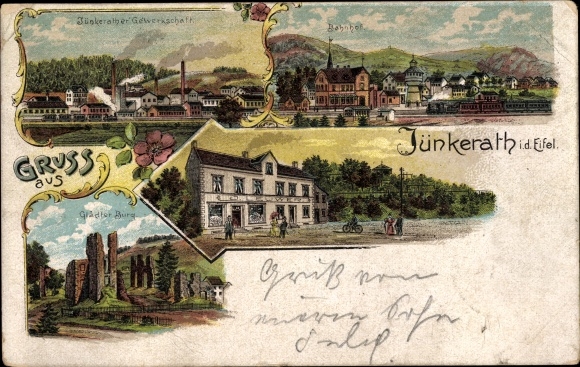 Jünkerather Gewerkschaft.
Bahnhof.
GRUSS
aus
Jünkerath i.d. Eifel.
Glädter Burg.
Gruß von
Sohn